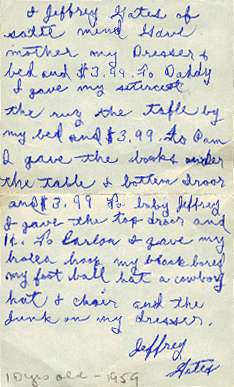 I Jeffrey Yates of
satte mind Gave
mother my Dresser &
bed and $3.99. To Daddy
I gave my
the rug the table by
my bed and $3.99. To Pam
I gave the books under
the table & bottem droor
and $3.99 To baby Jeffrey
I gave the top droor and
1¢. To Carlon I gave my
hoola hoop my black bored
my foot ball hat a cowboy
hat & chair and the
junk on my dresser.
Jeffrey
Yates
10 yrs old - 1959